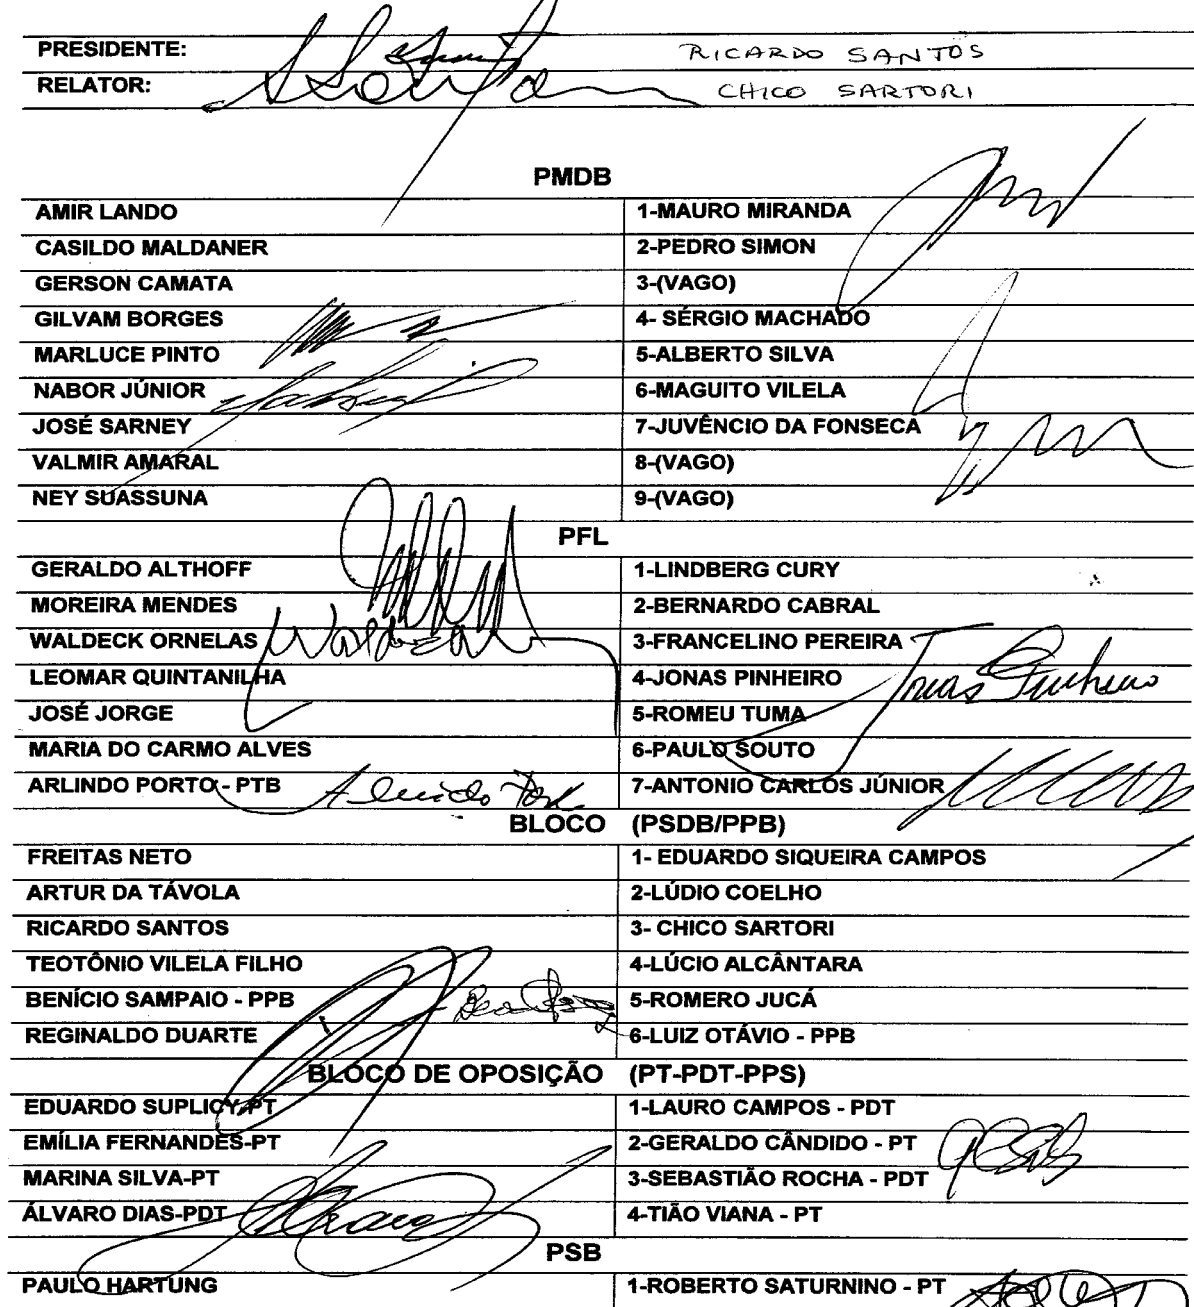 PRESIDENTE: RICARDO SANTOS
RELATOR: CHICO SARTORI
PMDB
AMIR LANDO 1-MAURO MIRANDA
CASILDO MALDANER 2-PEDRO SIMON
GERSON CAMATA 3-(VAGO)
GILVAM BORGES 4- SÉRGIO MACHADO
MARLUCE PINTO 5-ALBERTO SILVA
NABOR JÚNIOR 6-MAGUITO VILELA
JOSÉ SARNEY 7-JUVÊNCIO DA FONSECA
VALMIR AMARAL 8-(VAGO)
NEY SUASSUNA 9-(VAGO)
PFL
GERALDO ALTHOFF 1-LINDBERG CURY
MOREIRA MENDES 2-BERNARDO CABRAL
WALDECK ORNELAS 3-FRANCELINO PEREIRA
LEOMAR QUINTANILHA 4-JONAS PINHEIRO Jonas Pinheiro
JOSÉ JORGE 5-ROMEU TUMA
MARIA DO CARMO ALVES 6-PAULO SOUTO
ARLINDO PORTO - PTB 7-ANTONIO CARLOS JÚNIOR
BLOCO (PSDB/PPB)
FREITAS NETO 1- EDUARDO SIQUEIRA CAMPOS
ARTUR DA TÁVOLA 2-LÚDIO COELHO
RICARDO SANTOS 3- CHICO SARTORI
TEOTÔNIO VILELA FILHO 4-LÚCIO ALCÂNTARA
BENÍCIO SAMPAIO - PPB 5-ROMERO JUCÁ
REGINALDO DUARTE 6-LUIZ OTÁVIO - PPB
BLOCO DE OPOSIÇÃO (PT-PDT-PPS)
EDUARDO SUPLICY-PT 1-LAURO CAMPOS - PDT
EMÍLIA FERNANDES-PT 2-GERALDO CÂNDIDO - PT
MARINA SILVA-PT 3-SEBASTIÃO ROCHA - PDT
ÁLVARO DIAS-PDT 4-TIÃO VIANA - PT
PSB
PAULO HARTUNG 1-ROBERTO SATURNINO - PT